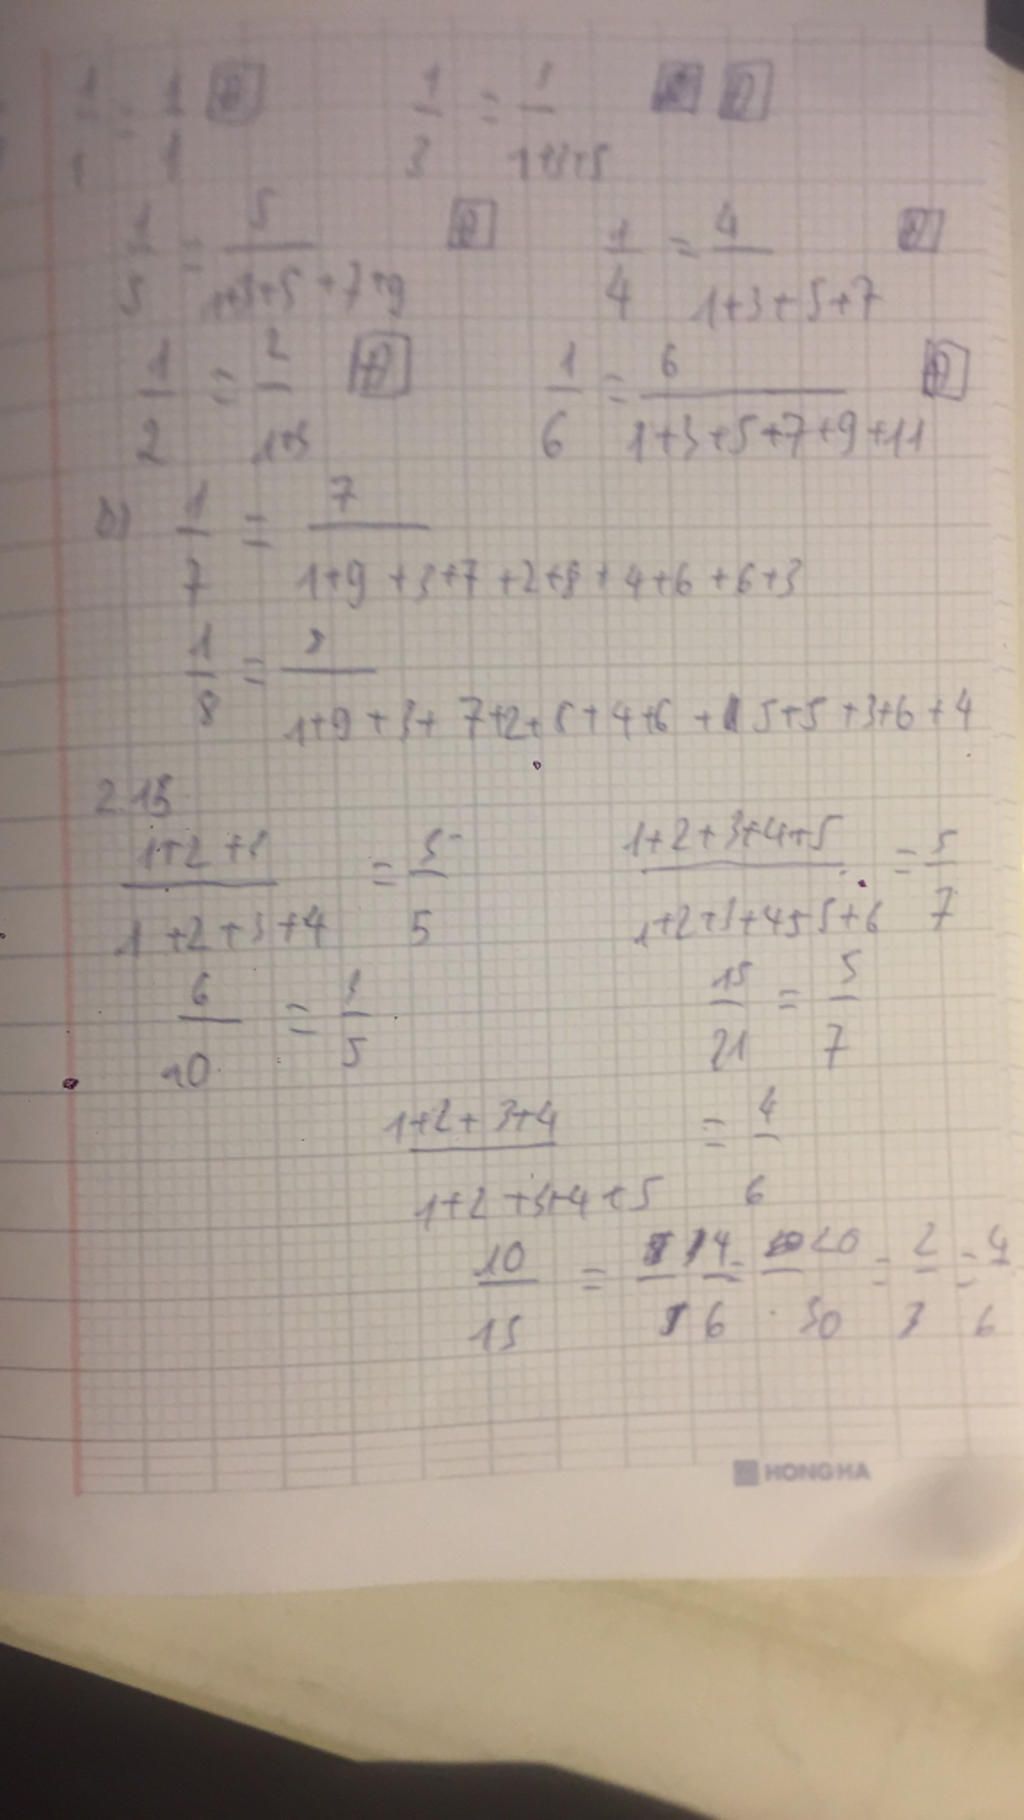 1/1 = 1/1 Đ 1/3 = 3/1+3+5 Đ
1/5 = 5/1+3+5+7+9 Đ 1/4 = 4/1+3+5+7 Đ
1/2 = 2/1+3 Đ 1/6 = 6/1+3+5+7+9+11 Đ
b) 1/7 = 7/1+9+3+7+2+8+4+6+6+3
1/8 = 8/1+9+3+7+2+8+4+6+5+5+3+6+4
2.13
1+2+3/1+2+3+4 = 3/5 1+2+3+4+5/1+2+3+4+5+6 = 5/7
6/10 = 3/5 15/21 = 5/7
1+2+3+4/1+2+3+4+5 = 4/6
10/15 = 4/6 = 20/30 = 2/3 = 4/6
HONG HA